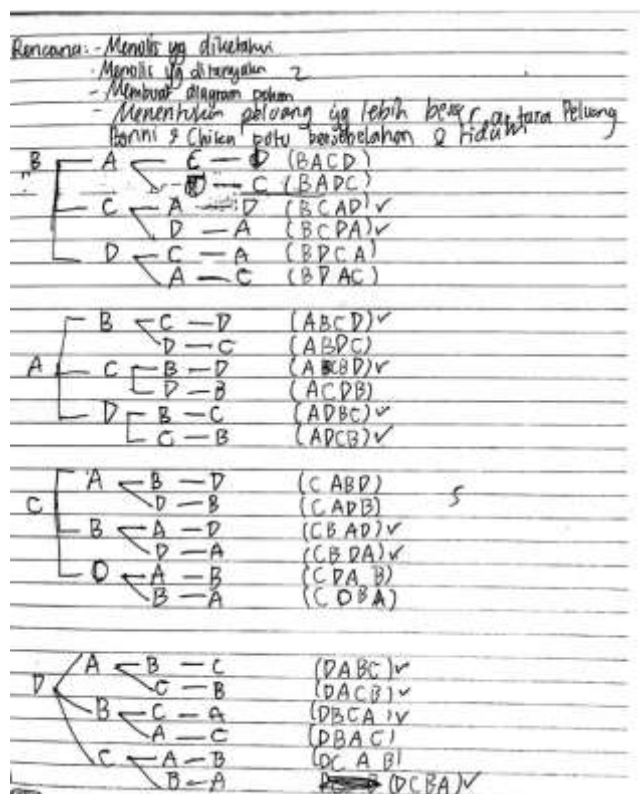 Rencana: - Menulis yg diketahui
- Menulis yg ditanyakan 2
- Membuat diagram pohon
- Menentukan peluang yg lebih besar, antara Peluang
Bonni & Chika bersebelahan & tidak
B A C D (BACD)
D C (BADC)
C A D (BCAD) ✓
D A (BCDA) ✓
D C A (BDCA)
A C (BDAC)
A B C D (ABCD) ✓
D C (ABDC)
C B D (ACBD) ✓
D B (ACDB)
D B C (ADBC) ✓
C B (ADCB) ✓
C A B D (CABD)
D B (CADB) 5
B A D (CBAD) ✓
D A (CBDA) ✓
D A B (CDAB)
B A (CDBA)
D A B C (DABC) ✓
C B (DACB) ✓
B C A (DBCA) ✓
A C (DBAC)
C A B (DCAB)
B A (DCBA) ✓